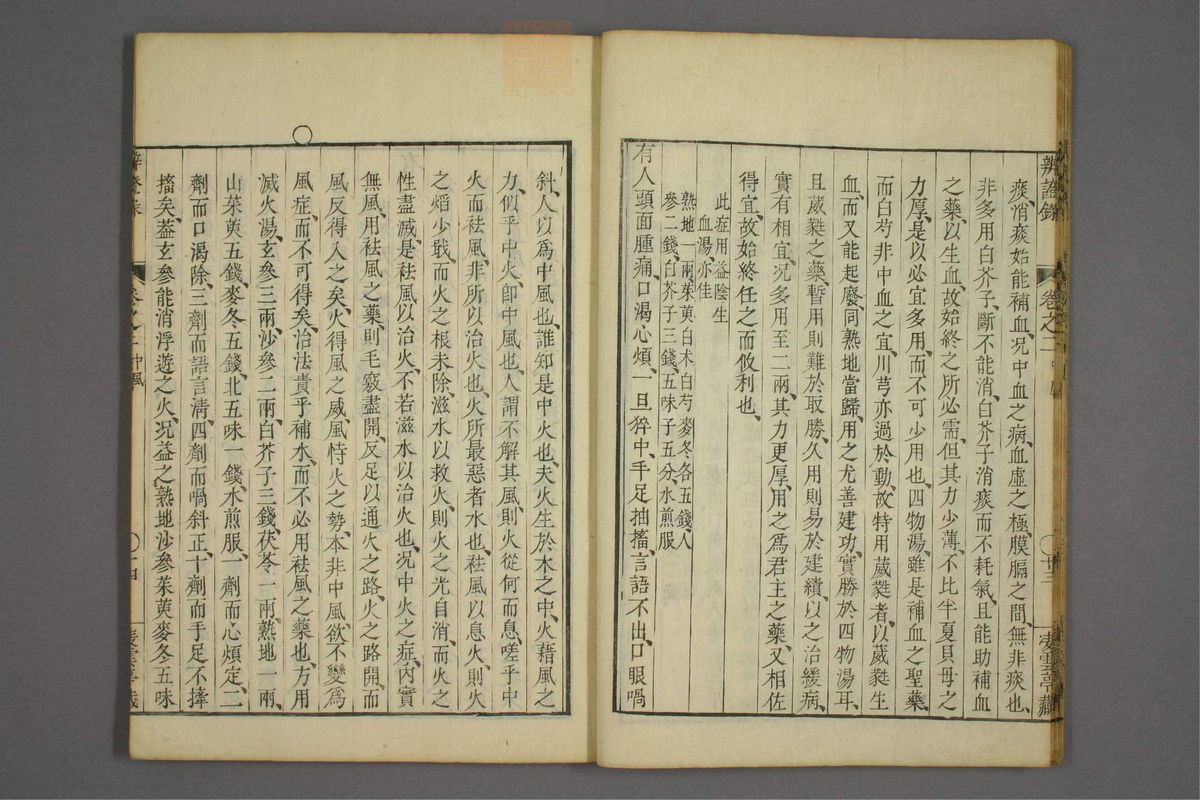 辨證錄 卷之二 中風 廿三
痰、消痰始能補血、况中血之病、血虛之極、膜膈之間、無非痰也、
非多用白芥子、斷不能消、白芥子消痰而不耗氣、且能助補血
之藥、以生血、故始終之所必需、但其力少薄、不比半夏貝母之
力厚、是以必宜多用、而不可少用也、四物湯、雖是補血之聖藥、
而白芍非中血之宜、川芎亦過於動、故特用葳蕤者、以葳蕤生
血、而又能起廢、同熟地當歸、用之尤善建功、實勝於四物湯耳、
且葳蕤之藥、暫用則難於取勝、久用則易於建績、以之治緩病、
實有相宜、况多用至二兩、其力更厚、用之爲君主之藥、又相佐
得宜、故始終任之而攸利也、
此症用益陰生
血湯、亦佳
熟地一兩茱萸白术白芍麥冬各五錢、人
參二錢、白芥子三錢、五味子五分、水煎服
有人頭面腫痛、口渴心煩、一旦猝中、手足抽搐、言語不出、口眼喎
斜、人以爲中風也、誰知是中火也、夫火生於木之中、火藉風之
力、似乎中火、卽中風也、人謂不解其風、則火從何而息、嗟乎中
火而祛風、非所以治火也、火所最惡者水也、祛風以息火、則火
之熖少戢、而火之根未除、滋水以救火、則火之光自消、而火之
性盡滅、是祛風以治火、不若滋水以治火也、况中火之症、內實
無風、用祛風之藥、則毛竅盡開、反足以通火之路、火之路開、而
風反得入之矣、火得風之威、風恃火之勢、本非中風、欲不變爲
風症、而不可得矣、治法貴乎補水、而不必用祛風之藥也、方用
滅火湯、玄參三兩、沙參二兩、白芥子三錢、茯苓一兩、熟地一兩、
山茱萸五錢、麥冬五錢、北五味一錢、水煎服、一劑而心煩定、二
劑而口渴除、三劑而語言淸、四劑而喎斜正、十劑而手足不摔
搐矣、葢玄參能消浮遊之火、况益之熟地沙參茱萸麥冬五味
卷之二 中風